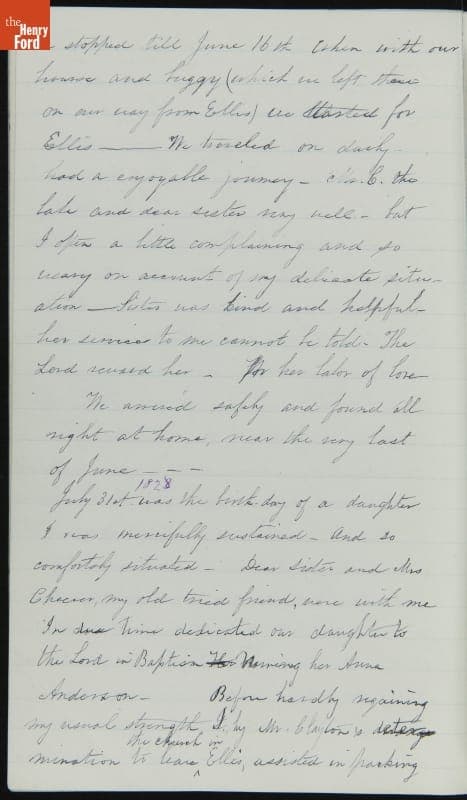 the
Henry
Ford
stopped till June 16th when with our
horse and buggy (which we left there
on our way from Ellis) we started for
Ellis —— We traveled on daily -
had a enjoyable journey - Mr. C. the
babe and dear sister very well - but
I often a little complaining and so
weary on account of my delicate situ-
ation — Sister was kind and helpful -
her services to me cannot be told - The
Lord reward her - For her labor of love
We arrived safely and found all
right at home, near the very last
of June - - -
1828
July 31st was the birth-day of a daughter
I was mercifully sustained - And so
comfortably situated - Dear Sister and Mrs
Cheever, my old tried friend, were with me
In due time dedicated our daughter to
the Lord in Baptism naming her Anna
Anderson - Before hardly regaining
my usual strength I, by Mr. Clayton's deterg
the church in
mination to leave Ellis, assisted in packing